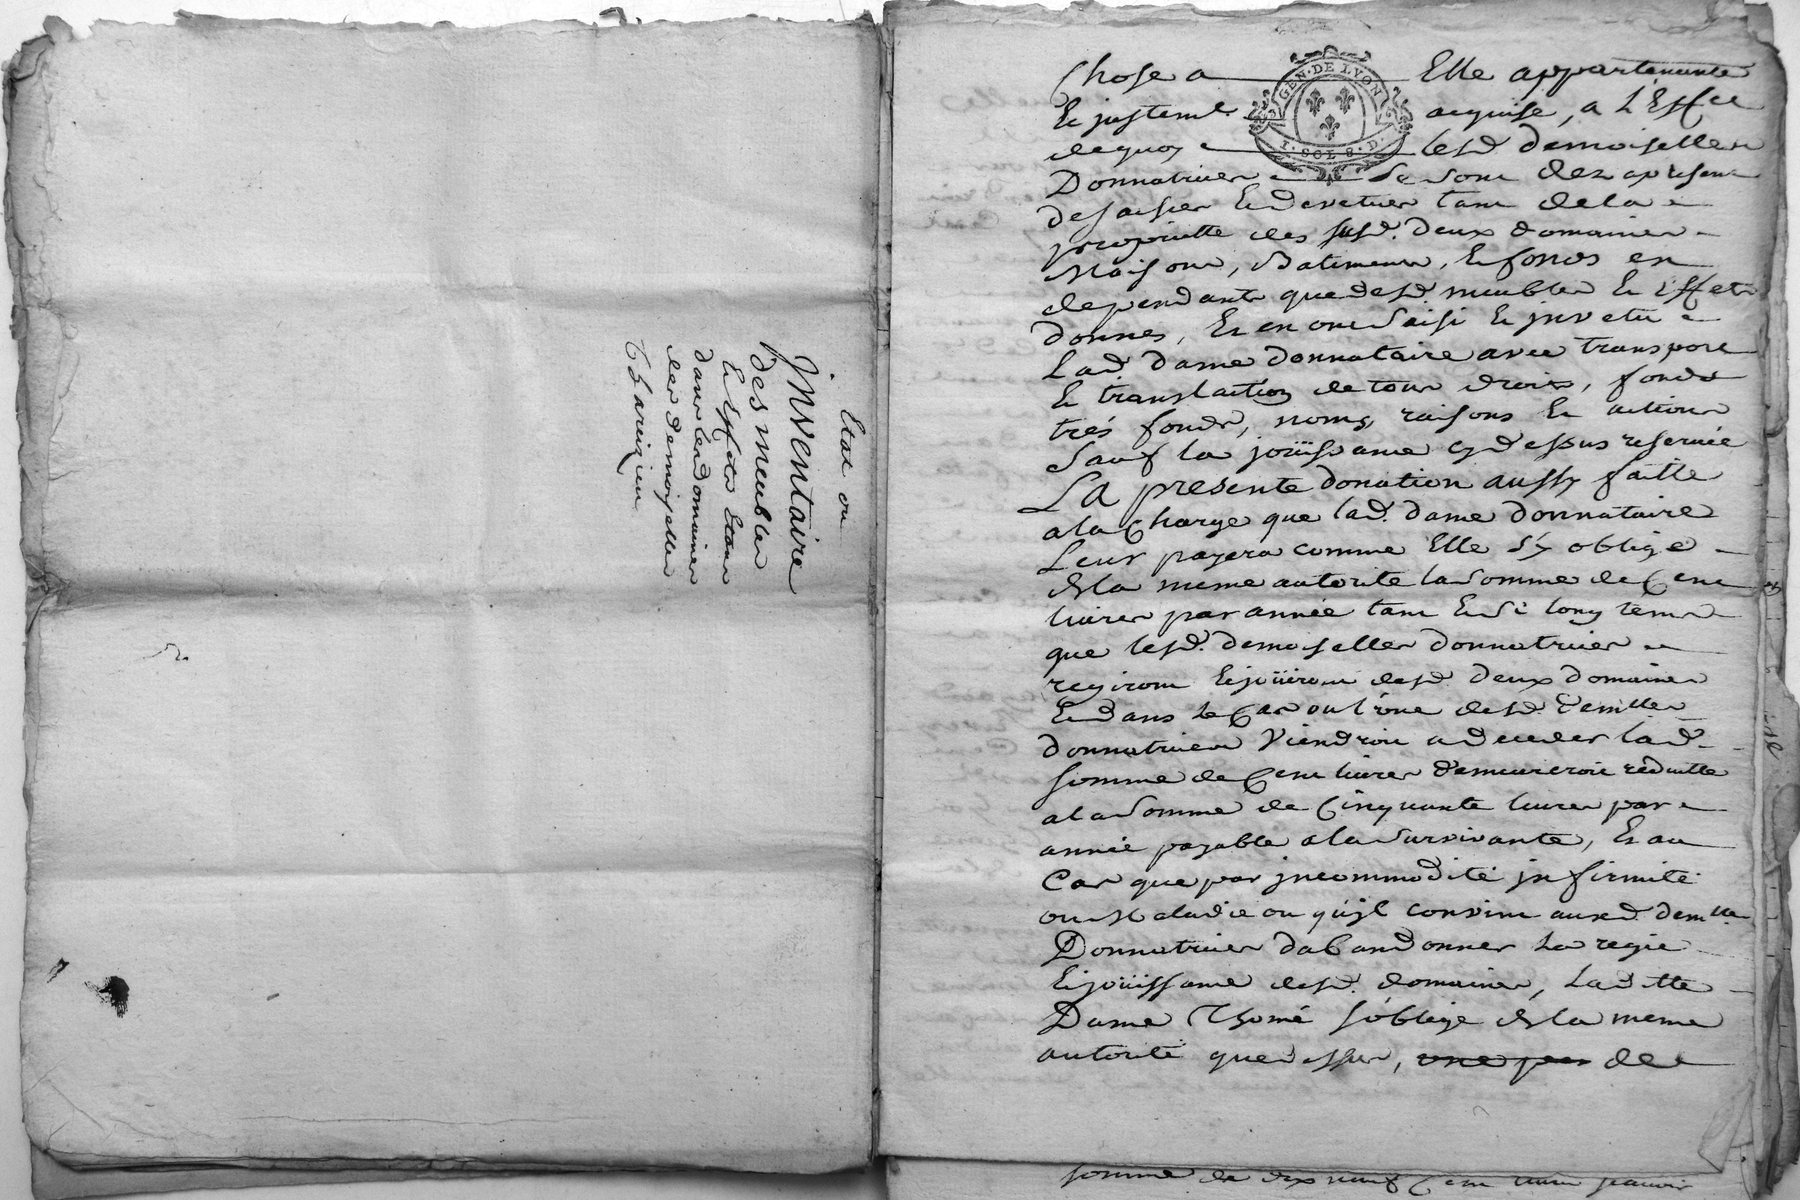 Etat ou
Inventaire
des meubles
et effets etans
dans les domaines
des demoiselles
Charrezieu
GEN·DE LYON
I·SOL 8·D
Chose a Elle appartenante
Et justemt. acquise, a L'Effet
dequoy lesd. demoiselles
Donnatrices se sont dez apresent
desaisies Et devetues tant de la
proprietté des susd. deux domaines
Maisons, Batimens, Et fonds en
dependants que desd. meubles Et Effets
donnés, Et en ont saisi Et jnvetu
Lad. dame donnataire avec transport
Et translation de tous droits, fonds
trés fonds, noms, raisons Et actions
sauf la joüissance cy dessus reservée
La presente donation aussy faitte
a la Charge que lad. dame donnataire
Leur payera comme Elle s'y oblige
de la meme autorité la somme de Cent
livres par année tant Et si long tems
que lesd. demoiselles donnatrices
regiront Et joüiront desd. deux domaines
Et dans le Cas ou l'une desd. demlles
donnatrices Viendroit a deceder lad.
somme de Cent livres demeureroit reduitte
a la somme de Cinquante livres par
année payable a la survivante, Et au
Cas que par jncommodité jnfirmité
ou Maladie ou qu'jl convint auxd. demlles
Donnatrices dabandonner La regie
Et joüissance desd. domaines, Laditte
Dame Thomé s'oblige de la meme
autorité que dessus, une par de
somme de dix neuf Cent livres